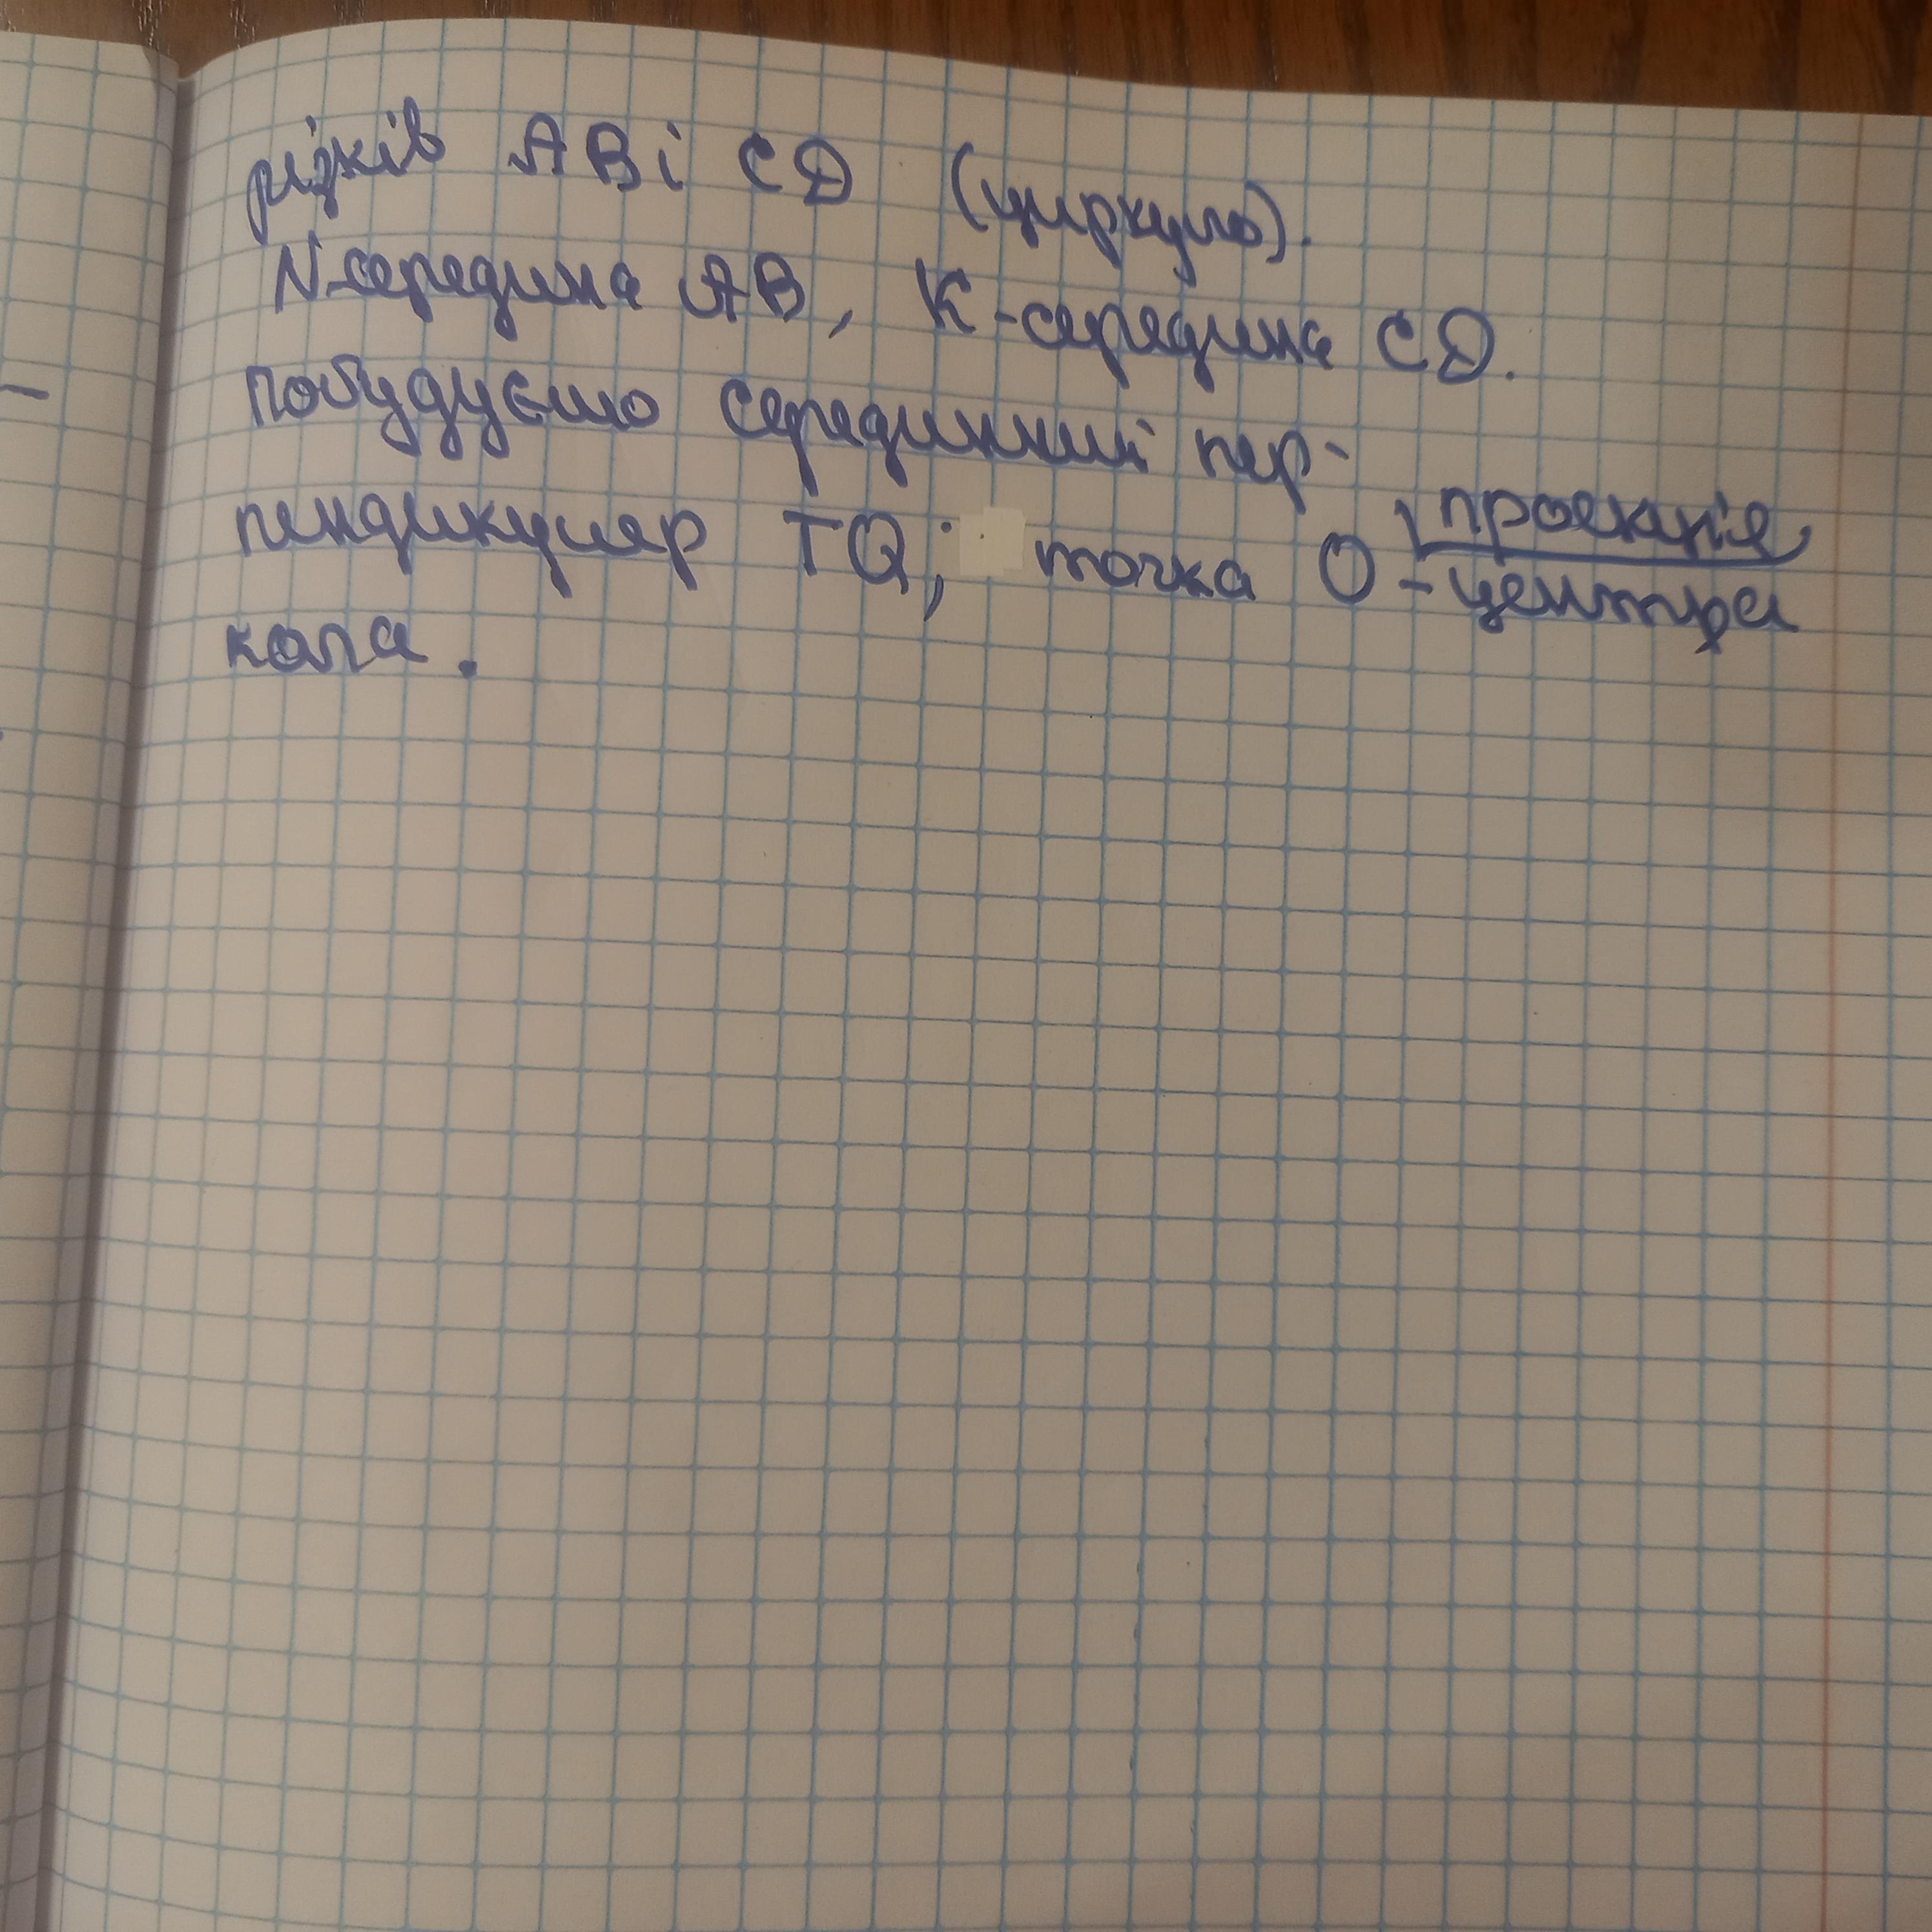 різків AB і CD (циркуль).
N-середина AB, K-середина CD.
Побудуємо серединний пер-
пендикуляр TQ; точка O - проекція центра
кола.